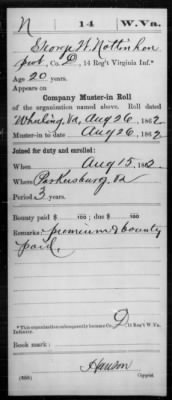 N | 14 | W. Va.
George W. Nottingham
pvt., Co. D, 14 Reg't Virginia Inf.*
Age 20 years.
Appears on
Company Muster-in Roll
of the organization named above. Roll dated
Wheeling, Va, Aug 26, 1862.
Muster-in to date Aug 26, 1862
Joined for duty and enrolled:
When Aug 15, 1862.
Where Parkersburg, Va
Period 3 years.
Bounty paid $ 100; due $ 100
Remarks: premium & bounty
paid.
*This organization subsequently became Co. D, 14 Reg't W. Va.
Infantry.
Book mark:
Hanson
(356) Copyist.